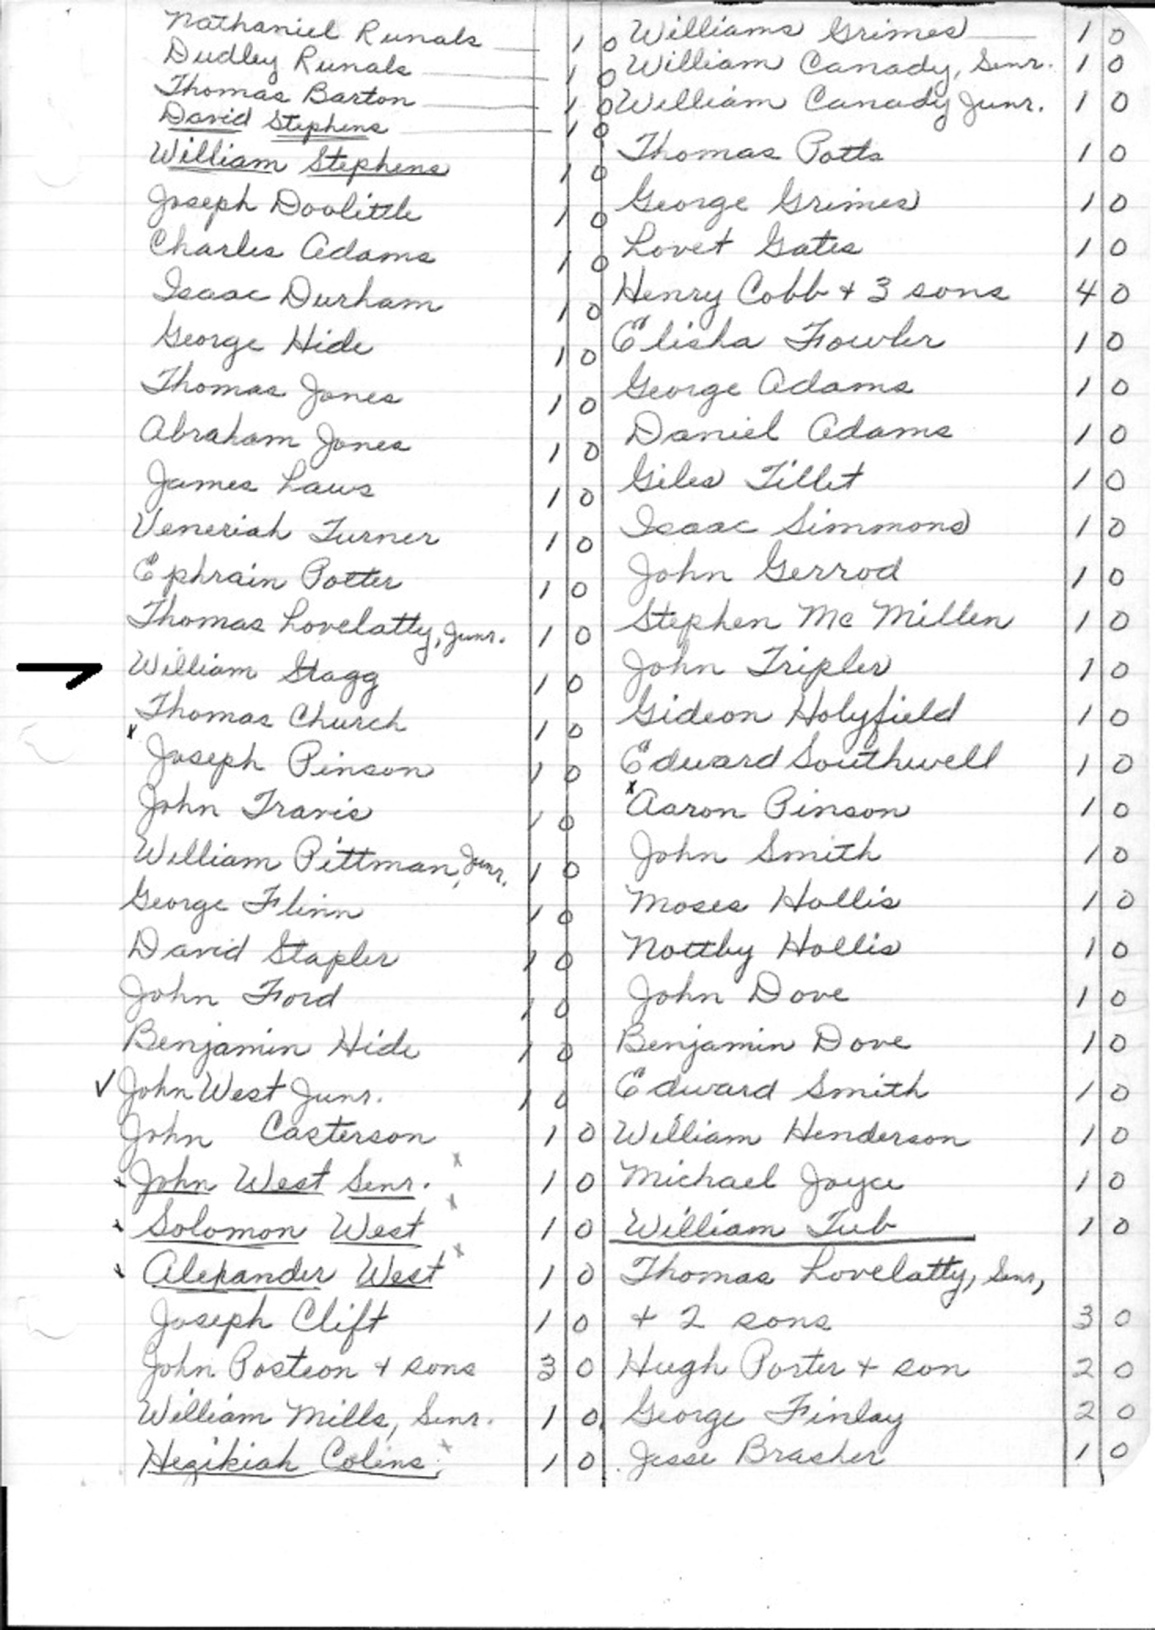 Nathaniel Runals 1 0
Dudley Runals 1 0
Thomas Barton 1 0
David Stephens 1 0
William Stephens 1 0
Joseph Doolittle 1 0
Charles Adams 1 0
Isaac Durham 1 0
George Hide 1 0
Thomas Jones 1 0
Abraham Jones 1 0
James Laws 1 0
Veneriah Turner 1 0
Ephrain Potter 1 0
Thomas Lovelatty, Junr. 1 0
William Stagg 1 0
Thomas Church 1 0
x Joseph Pinson 1 0
John Travis 1 0
William Pittman, Junr. 1 0
George Flinn 1 0
David Stapler 1 0
John Ford 1 0
Benjamin Hide 1 0
✓ John West Junr. 1 0
John Casterson 1 0
x John West Senr. x 1 0
x Solomon West x 1 0
x Alexander West x 1 0
Joseph Clift 1 0
John Posteon + sons 3 0
William Mills, Senr. 1 0
Hezikiah Colins x 1 0
Williams Grimes 1 0
William Canady, Senr. 1 0
William Canady Junr. 1 0
Thomas Potts 1 0
George Grimes 1 0
Lovet Gates 1 0
Henry Cobb + 3 sons 4 0
Elisha Fowler 1 0
George Adams 1 0
Daniel Adams 1 0
Giles Tillet 1 0
Isaac Simmons 1 0
John Gerrod 1 0
Stephen Mc Millen 1 0
John Tripler 1 0
Gideon Holyfield 1 0
Edward Southwell 1 0
x Aaron Pinson 1 0
John Smith 1 0
Moses Hollis 1 0
Nottby Hollis 1 0
John Dove 1 0
Benjamin Dove 1 0
Edward Smith 1 0
William Henderson 1 0
Michael Joyce 1 0
William Tub 1 0
Thomas Lovelatty, Senr,
+ 2 sons 3 0
Hugh Porter + son 2 0
George Finlay 2 0
Jesse Brasher 1 0